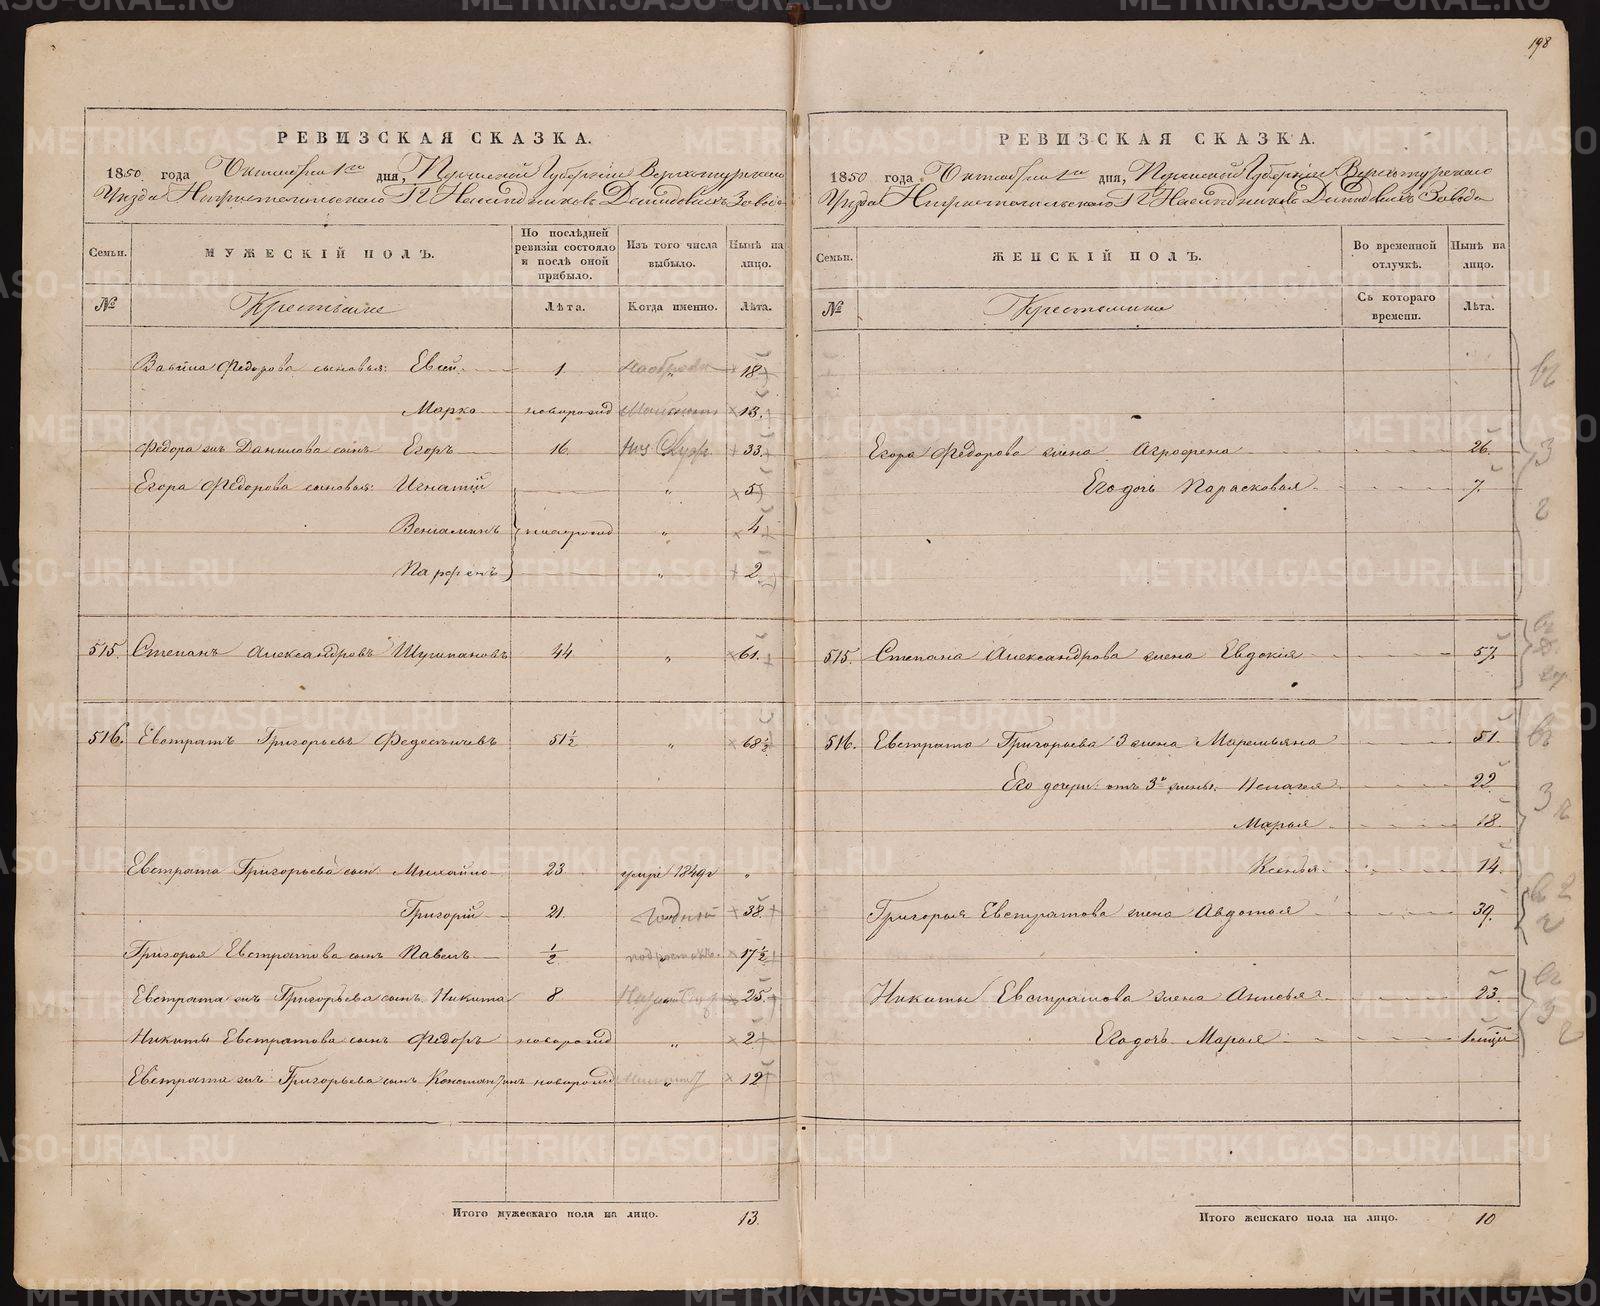 198
РЕВИЗСКАЯ СКАЗКА.
1850 года Октября 1го дня, Пермской Губернiи Верхотурскаго
Уѣзда Нижнетагильскаго ГГ Наслѣдниковъ Демидовыхъ Завода
Семьи. МУЖЕСКІЙ ПОЛЪ. По послѣдней ревизіи состояло и послѣ оной прибыло. Изъ того числа выбыло. Нынѣ на лицо.
№ Крестьяне Лѣта. Когда именно. Лѣта.
Федорова сыновья: Евсей 1 " 18
Марко новорожд 13.
Федора же Данилова сынъ Егоръ 16. " 33.
Егора Федорова сыновья: Игнатiй " 5
Венiаминъ новорожд " 4
Парфенъ " 2.
515. Степанъ Александровъ 44 " 61.
516. Евстратъ Григорьевъ 51 ½ " 68 ½
Евстрата Григорьева сын: Михайло 23 умре 1849г "
Григорiй 21. 38.
Григорья Евстратова сынъ Павелъ ½ 17 ½
Евстрата же Григорьева сынъ Никита 8 " 25.
Никиты Евстратова сынъ Федоръ новорожд " 2
Евстрата же Григорьева сынъ Константинъ новорожд " 12
Итого мужескаго пола на лицо. 13.
РЕВИЗСКАЯ СКАЗКА.
1850 года Октября 1го дня, Пермской Губернiи Верхотурскаго
Уѣзда Нижнетагильскаго ГГ Наслѣдниковъ Демидовыхъ Завода
Семьи. ЖЕНСКІЙ ПОЛЪ. Во временной отлучкѣ. Нынѣ на лицо.
№ Крестьянки Съ котораго времени. Лѣта.
Егора Федорова жена Агрофена 26.
Его дочь Парасковья 7.
515. Степана Александрова жена Евдокiя 57.
516. Евстрата Григорьева 3 жена Маремьяна 51.
Его дочери: отъ 3й жены: Пелагея 22
Марья 18.
Ксенья 14.
Григорья Евстратова жена Авдотья 39.
Никиты Евстратова жена 23.
Его дочь Марья
Итого женскаго пола на лицо. 10
METRIKI.GASO-URAL.RU